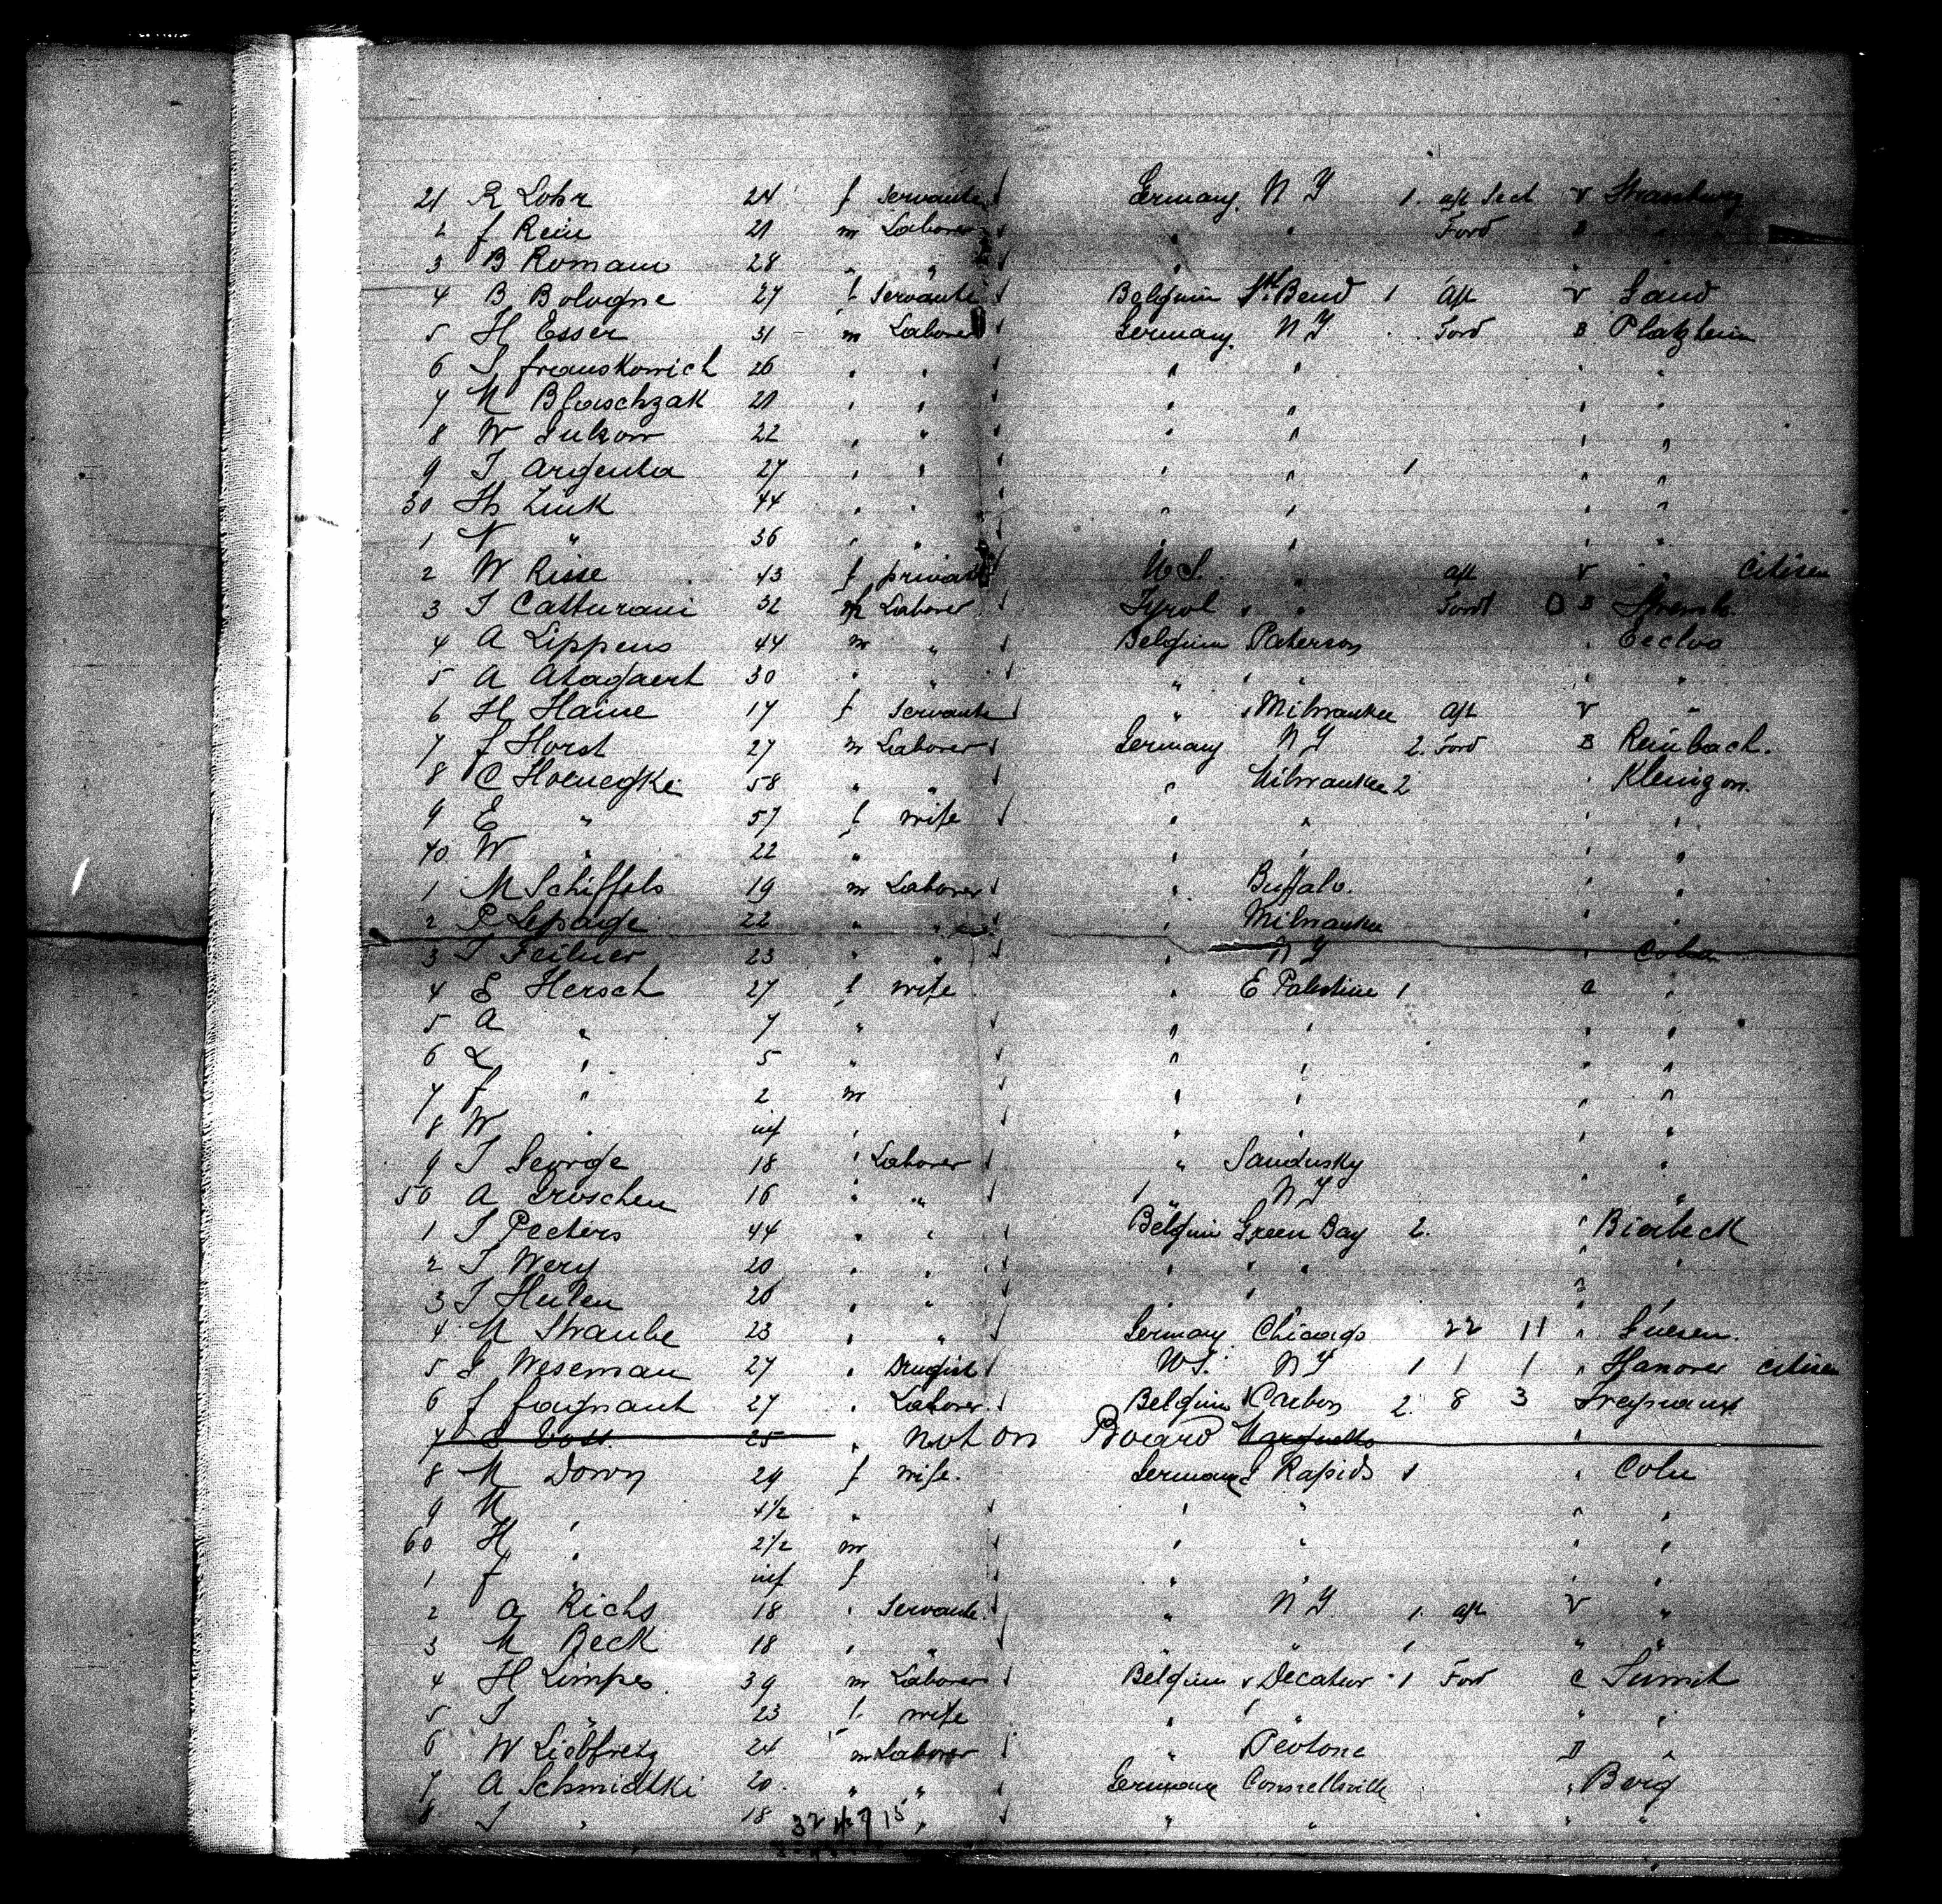 21 R Lohr 24 f Servante Germany. N Y 1. aft Sect V Strassburg
2 f Rein 21 m Laborer " " Ford B "
3 B Romain 28 " " " "
4 B Bologne 27 f Servante Belgium Sth Bend 1 Aft V Gand
5 H Esser 31 m Laborer Germany. N Y Ford B Platzheim
6 J franskowich 26 " " " " " "
7 M Blaschzak 21 " " " " " "
8 W Sukow 22 " " " " " "
9 J Argenta 27 " " " " 1 " "
30 Hs Zink 44 " " " " " "
1 N " 36 " " " " " "
2 W Risse 43 f private U S. " aft V " Citizen
3 J Catturani 32 m Laborer Tyrol " Ford O B
4 A Lippens 44 m " Belgium Paterson " Eecloo
5 A Atagaert 30 " " " " " "
6 H Haine 17 f Servante " Milwaukee aft V "
7 f Horst 27 m Laborer Germany N Y 2. Ford B Reinbach.
8 C Hoenegke 58 " " " Milwaukee 2 "
9 E " 57 f wife " " " "
40 W " 22 " " " " "
1 M Schiffels 19 m Laborer " Buffalo. " "
2 P Lepage 22 " " " Milwaukee " "
3 J Feilner 23 " " " N Y " Coln
4 E Hersch 27 f wife " E Palestine 1 C "
5 A " 7 " " " " "
6 L " 5 " " " " "
7 f " 2 m " " " "
8 W " inf " " " " "
9 J George 18 " Laborer " Sandusky " "
50 A Groschen 16 " " " N Y "
1 J Peeters 44 " " Belgium Green Bay 2. " Bierbeck
2 J Wery 20 " " " " " "
3 J Hulen 26 " " " " "
4 M Straube 23 " " Germany Chicago 22 11 " Guesen.
5 J Weseman 27 " Drugist U S. N Y 1 1 1 " Hanover Citizen
6 J fagnant 27 " Laborer. Belgium Carbon 2. 8 3
7 25 " not on Board "
8 M Dowy 24 f wife. Germany G Rapids 1 " Coln
9 M " 4 1/2 " " " " "
60 H " 2 1/2 m " " " "
1 f " inf f " " "
2 A Richs 18 " Servante. " N Y. 1. aft V "
3 M Beck 18 " " " " 1 " "
4 H Limpes. 39 m Laborer Belgium Decatur 1 Ford C
5 J " 23 f. wife " " " "
6 W Liebfretz 24 m Laborer " Peotone D "
7 A Schmidtki 20. " " Germany Connellsville " Berg
8 J " 18 " " " " "